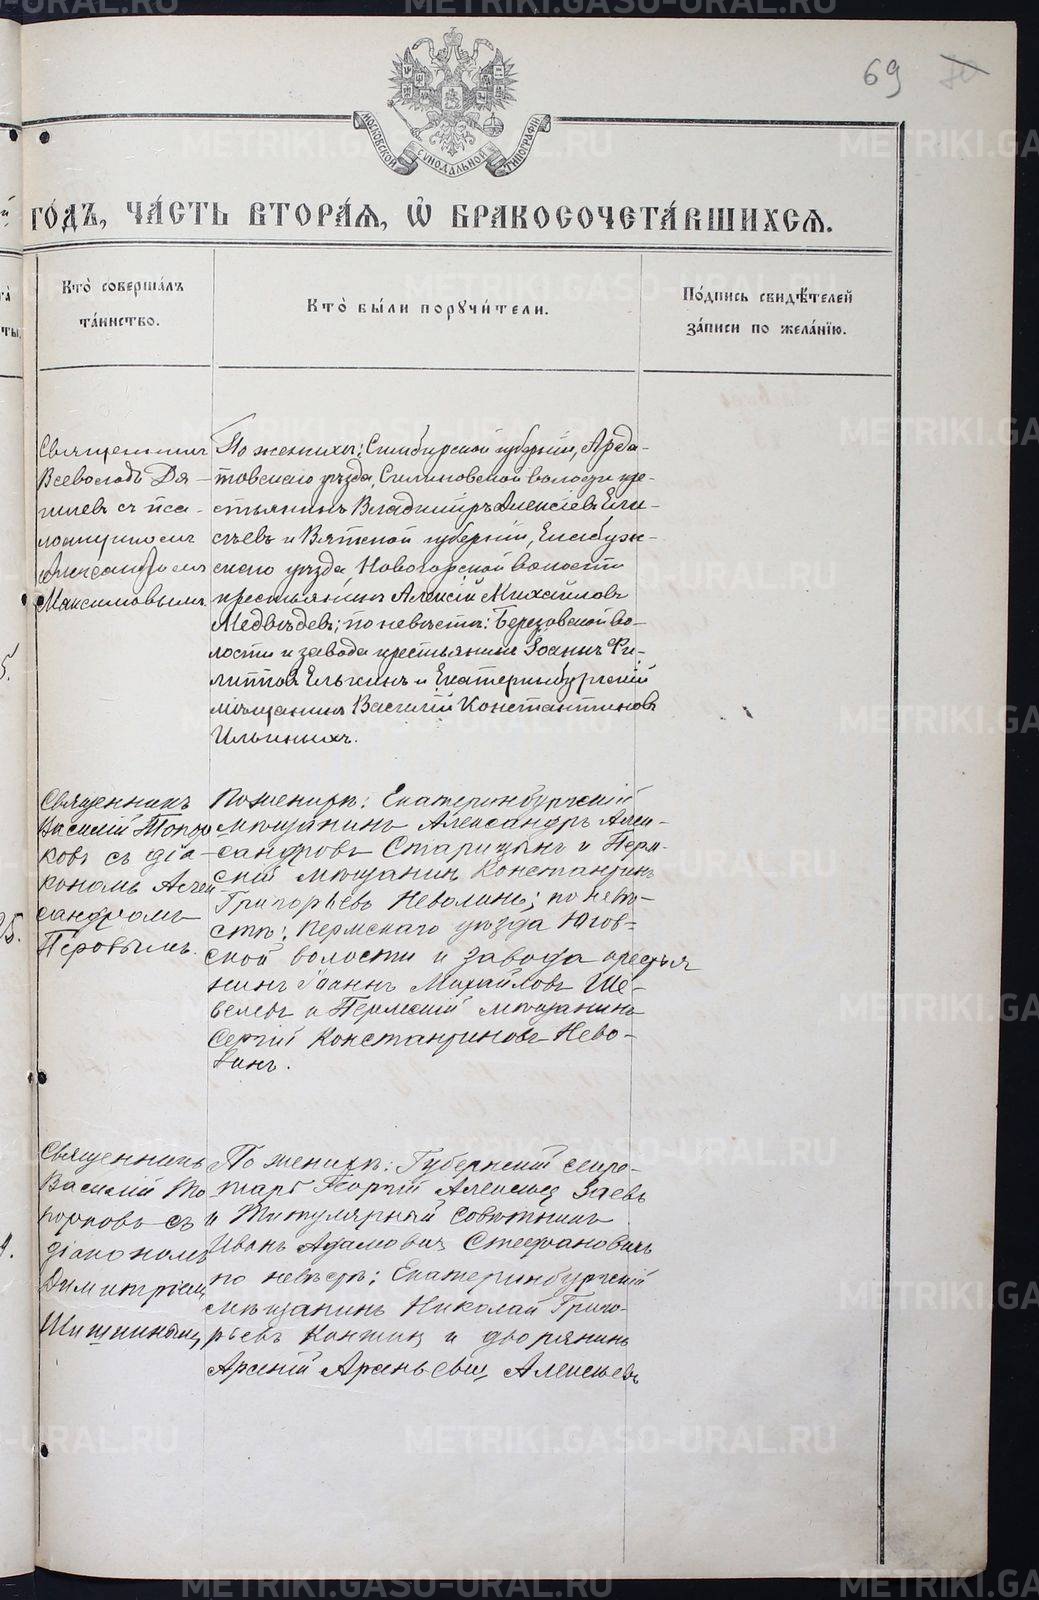 69 70
МОСКОВСКОЙ СѴНОДАЛЬНОЙ ТИПОГРАФІИ
ГО́ДЪ, ЧА́СТЬ ВТОРА́Ѧ, Ѡ҆ БРАКОСОЧЕТА́ВШИХСѦ.
Кто̀ соверша́лъ
та́инство.
Кто̀ бы́ли порꙋчи́тели.
По́дпись свидѣ́телей
за́писи по жела́нїю.
Священник
Всеволодъ Дя-
гилевъ съ пса-
ломщикомъ
Александромъ
Максимовымъ.
По женихѣ: Симбирской губерніи, Арда-
товскаго уѣзда, волости кре-
стьянинъ Владиміръ Алексіевъ Ели-
сѣевъ и Вятской губерніи, Елабуж-
скаго уѣзда, Новогорской волости
крестьянинъ Алексій Михайловъ
Медвѣдевъ; по невѣстѣ: Березовской во-
лости и завода крестьянинъ Іоаннъ Фи-
липповъ Елькинъ и Екатеринбургскій
мѣщанинъ Василій Константиновъ
Ильиныхъ.
Священникъ
Василій Топор
ковъ съ діа-
кономъ Алек
сандромъ
Перовымъ.
По женихѣ: Екатеринбургскій
мѣщанинъ Александръ Алек-
сандровъ Старицынъ и Перм-
ской мѣщанинъ Константинъ
Григорьевъ Неволинъ; по невѣ-
стѣ: Пермскаго уѣзда Югов-
ской волости и завода крестья
нинъ Іоаннъ Михайловъ Ше-
велевъ и Пермскій мѣщанинъ
Сергій Константиновъ Нево-
линъ.
Священникъ
Василій То-
порковъ съ
діакономъ
Димитріемъ
Шишкинымъ
По женихѣ: Губернскій секре-
тарь Георгій Алексѣев Заевъ
и Титулярный совѣтникъ
Иванъ Адамовичъ Стефановичъ
по невѣстѣ: Екатеринбургскій
мѣщанинъ Николай Григо-
рьевъ и дворянинъ
Арсеній Арсеньевичъ Алексѣевъ
METRIKI.GASO-URAL.RU